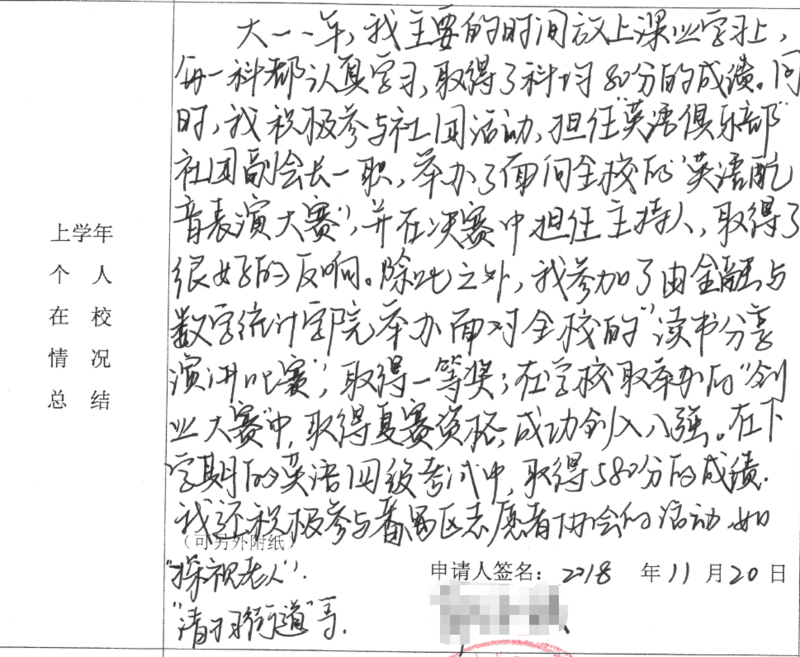 大一一年，我主要的时间放上课业学习上，
每一科都认真学习，取得了科均80分的成绩。同
时，我积极参与社团活动，担任“英语俱乐部”
社团副会长一职，举办了面向全校的“英语配
音表演大赛”，并在决赛中担任主持人，取得了
很好的反响。除此之外，我参加了由金融与
数学统计学院举办面对全校的“读书分享
演讲比赛”，取得一等奖；在学校取举办的“创
业大赛”中，取得复赛资格，成功创入八强。在下
学期的英语四级考试中，取得580分的成绩.
我还积极参与番禺区志愿者协会的活动，如
（可另外附纸）
“探视老人”.
“清扫街道”等.
上学年
个人
在校
情况
总结
申请人签名：2018 年11月20日